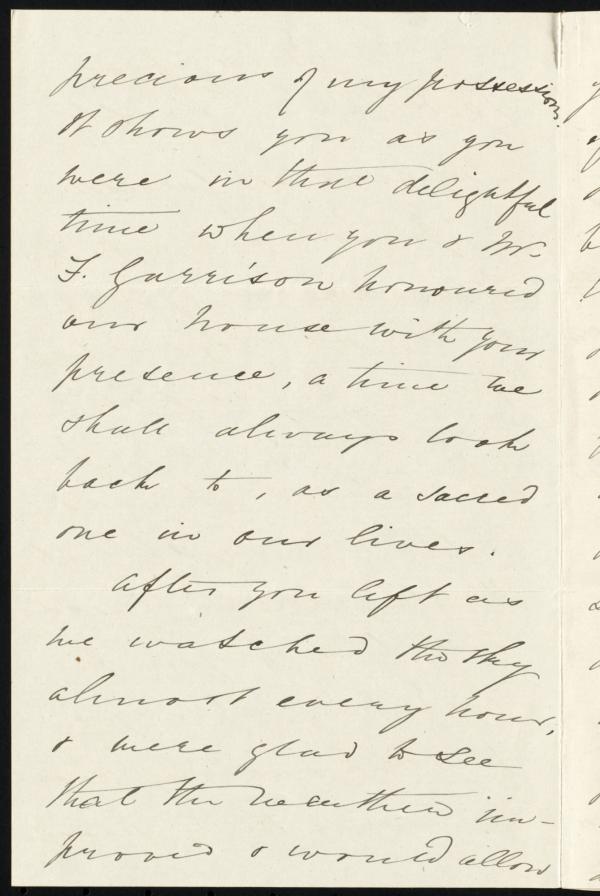 precious of my possessions.
It shows you as you
were in that delightful
time when you & Mr.
F. Garrison honoured
our house with your
presence, a time we
shall always look
back to, as a sacred
one in our lives.
After you left us
we watched the sky
almost every hour,
& were glad to see
that the weather im-
proved & would allow